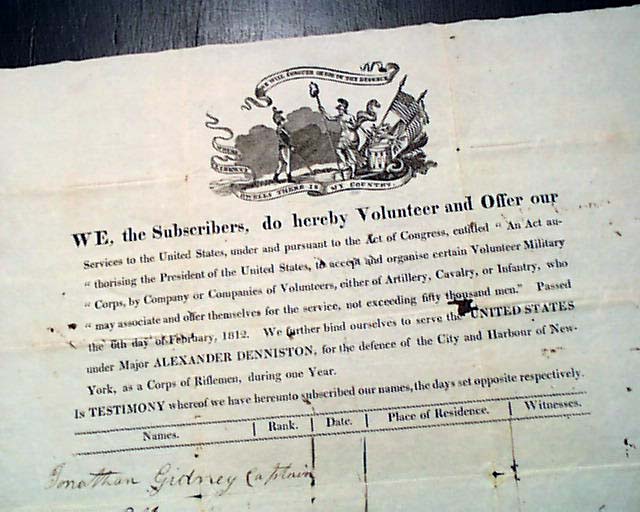 WILL CONQUER OR DIE IN THE DEFENCE
WHERE LIBERTY
DWELLS THERE IS MY COUNTRY.
WE, the Subscribers, do hereby Volunteer and Offer our
Services to the United States, under and pursuant to the Act of Congress, entitled "An Act au-
"thorising the President of the United States, to accept and organise certain Volunteer Military
"Corps, by Company or Companies of Volunteers, either of Artillery, Cavalry, or Infantry, who
"may associate and offer themselves for the service, not exceeding fifty thousand men." Passed
the 6th day of February, 1812. We further bind ourselves to serve the UNITED STATES
under Major ALEXANDER DENNISTON, for the defence of the City and Harbour of New-
York, as a Corps of Riflemen, during one Year.
In TESTIMONY whereof we have hereunto subscribed our names, the days set opposite respectively.
Names. Rank. Date. Place of Residence. Witnesses.
Jonathan Gidney Captain